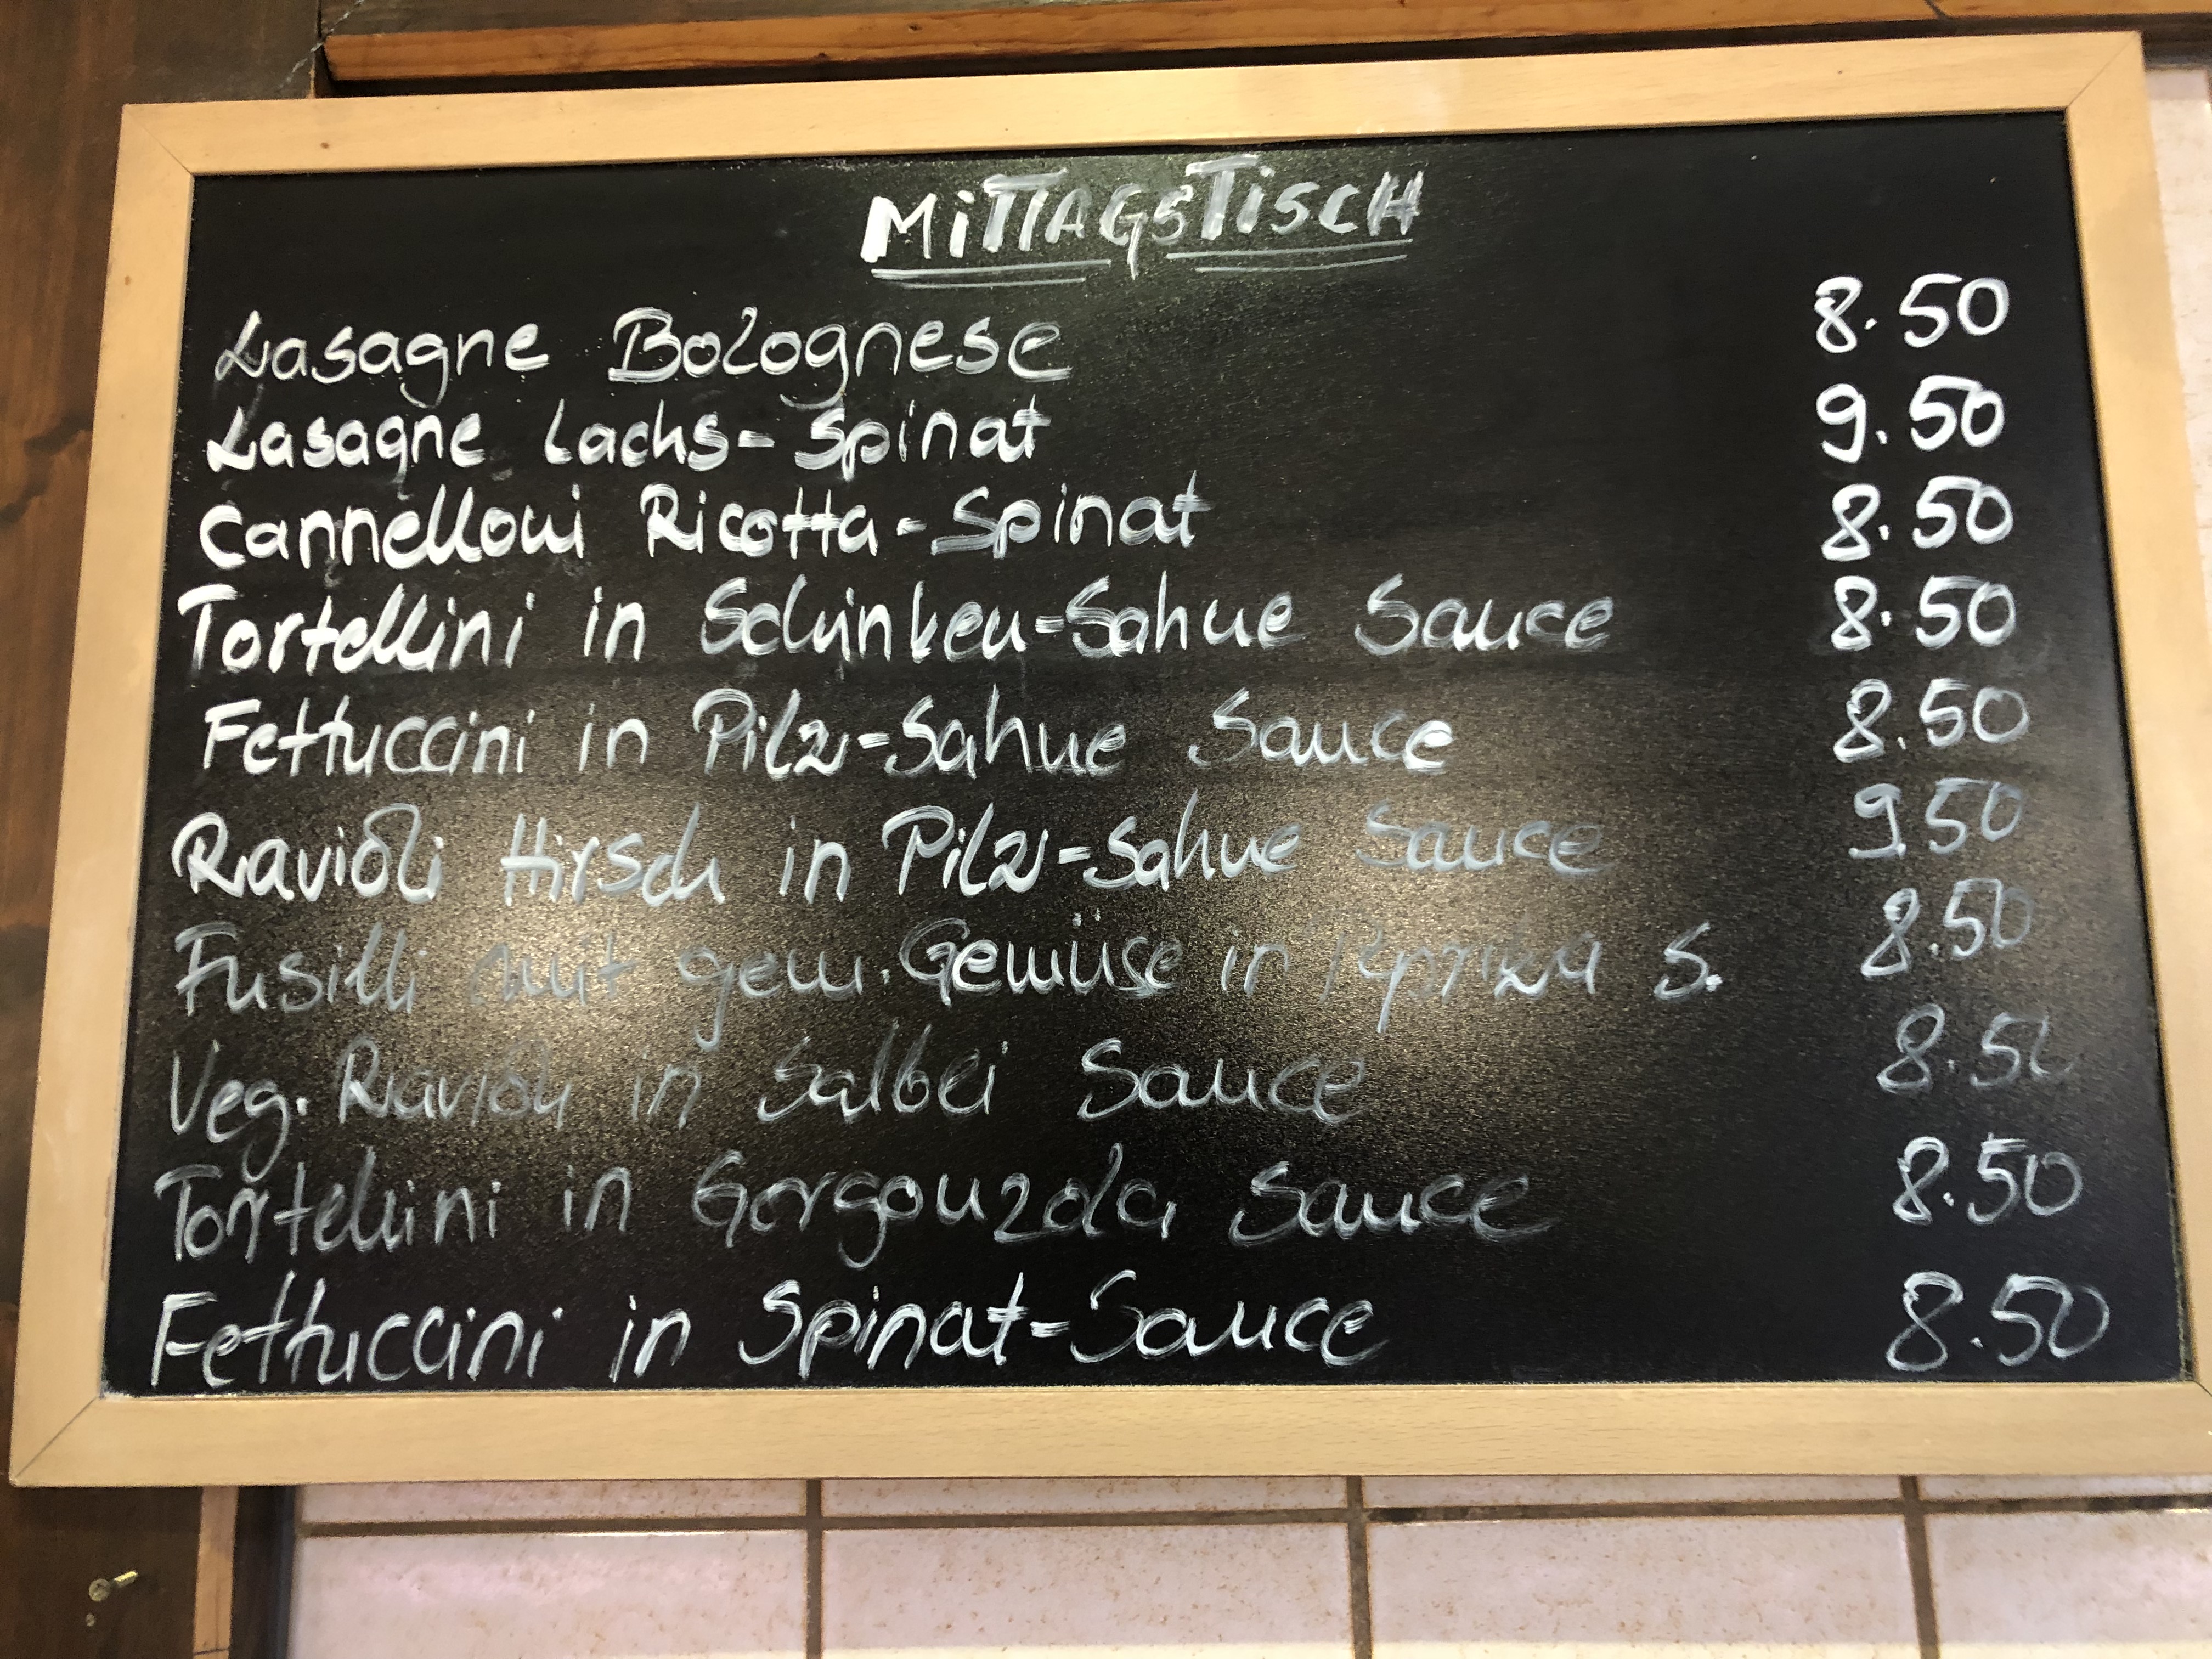 MITTAGSTISCH
Lasagne Bolognese 8.50
Lasagne Lachs-Spinat 9.50
Cannelloni Ricotta-Spinat 8.50
Tortellini in Schinken-Sahne Sauce 8.50
Fettuccini in Pilz-Sahne Sauce 8.50
Ravioli Hirsch in Pilz-Sahne Sauce 9.50
Fusilli mit gem. Gemüse in Paprika S. 8.50
Veg. Ravioli in Salbei Sauce 8.50
Tortellini in Gorgonzola Sauce 8.50
Fettuccini in Spinat-Sauce 8.50